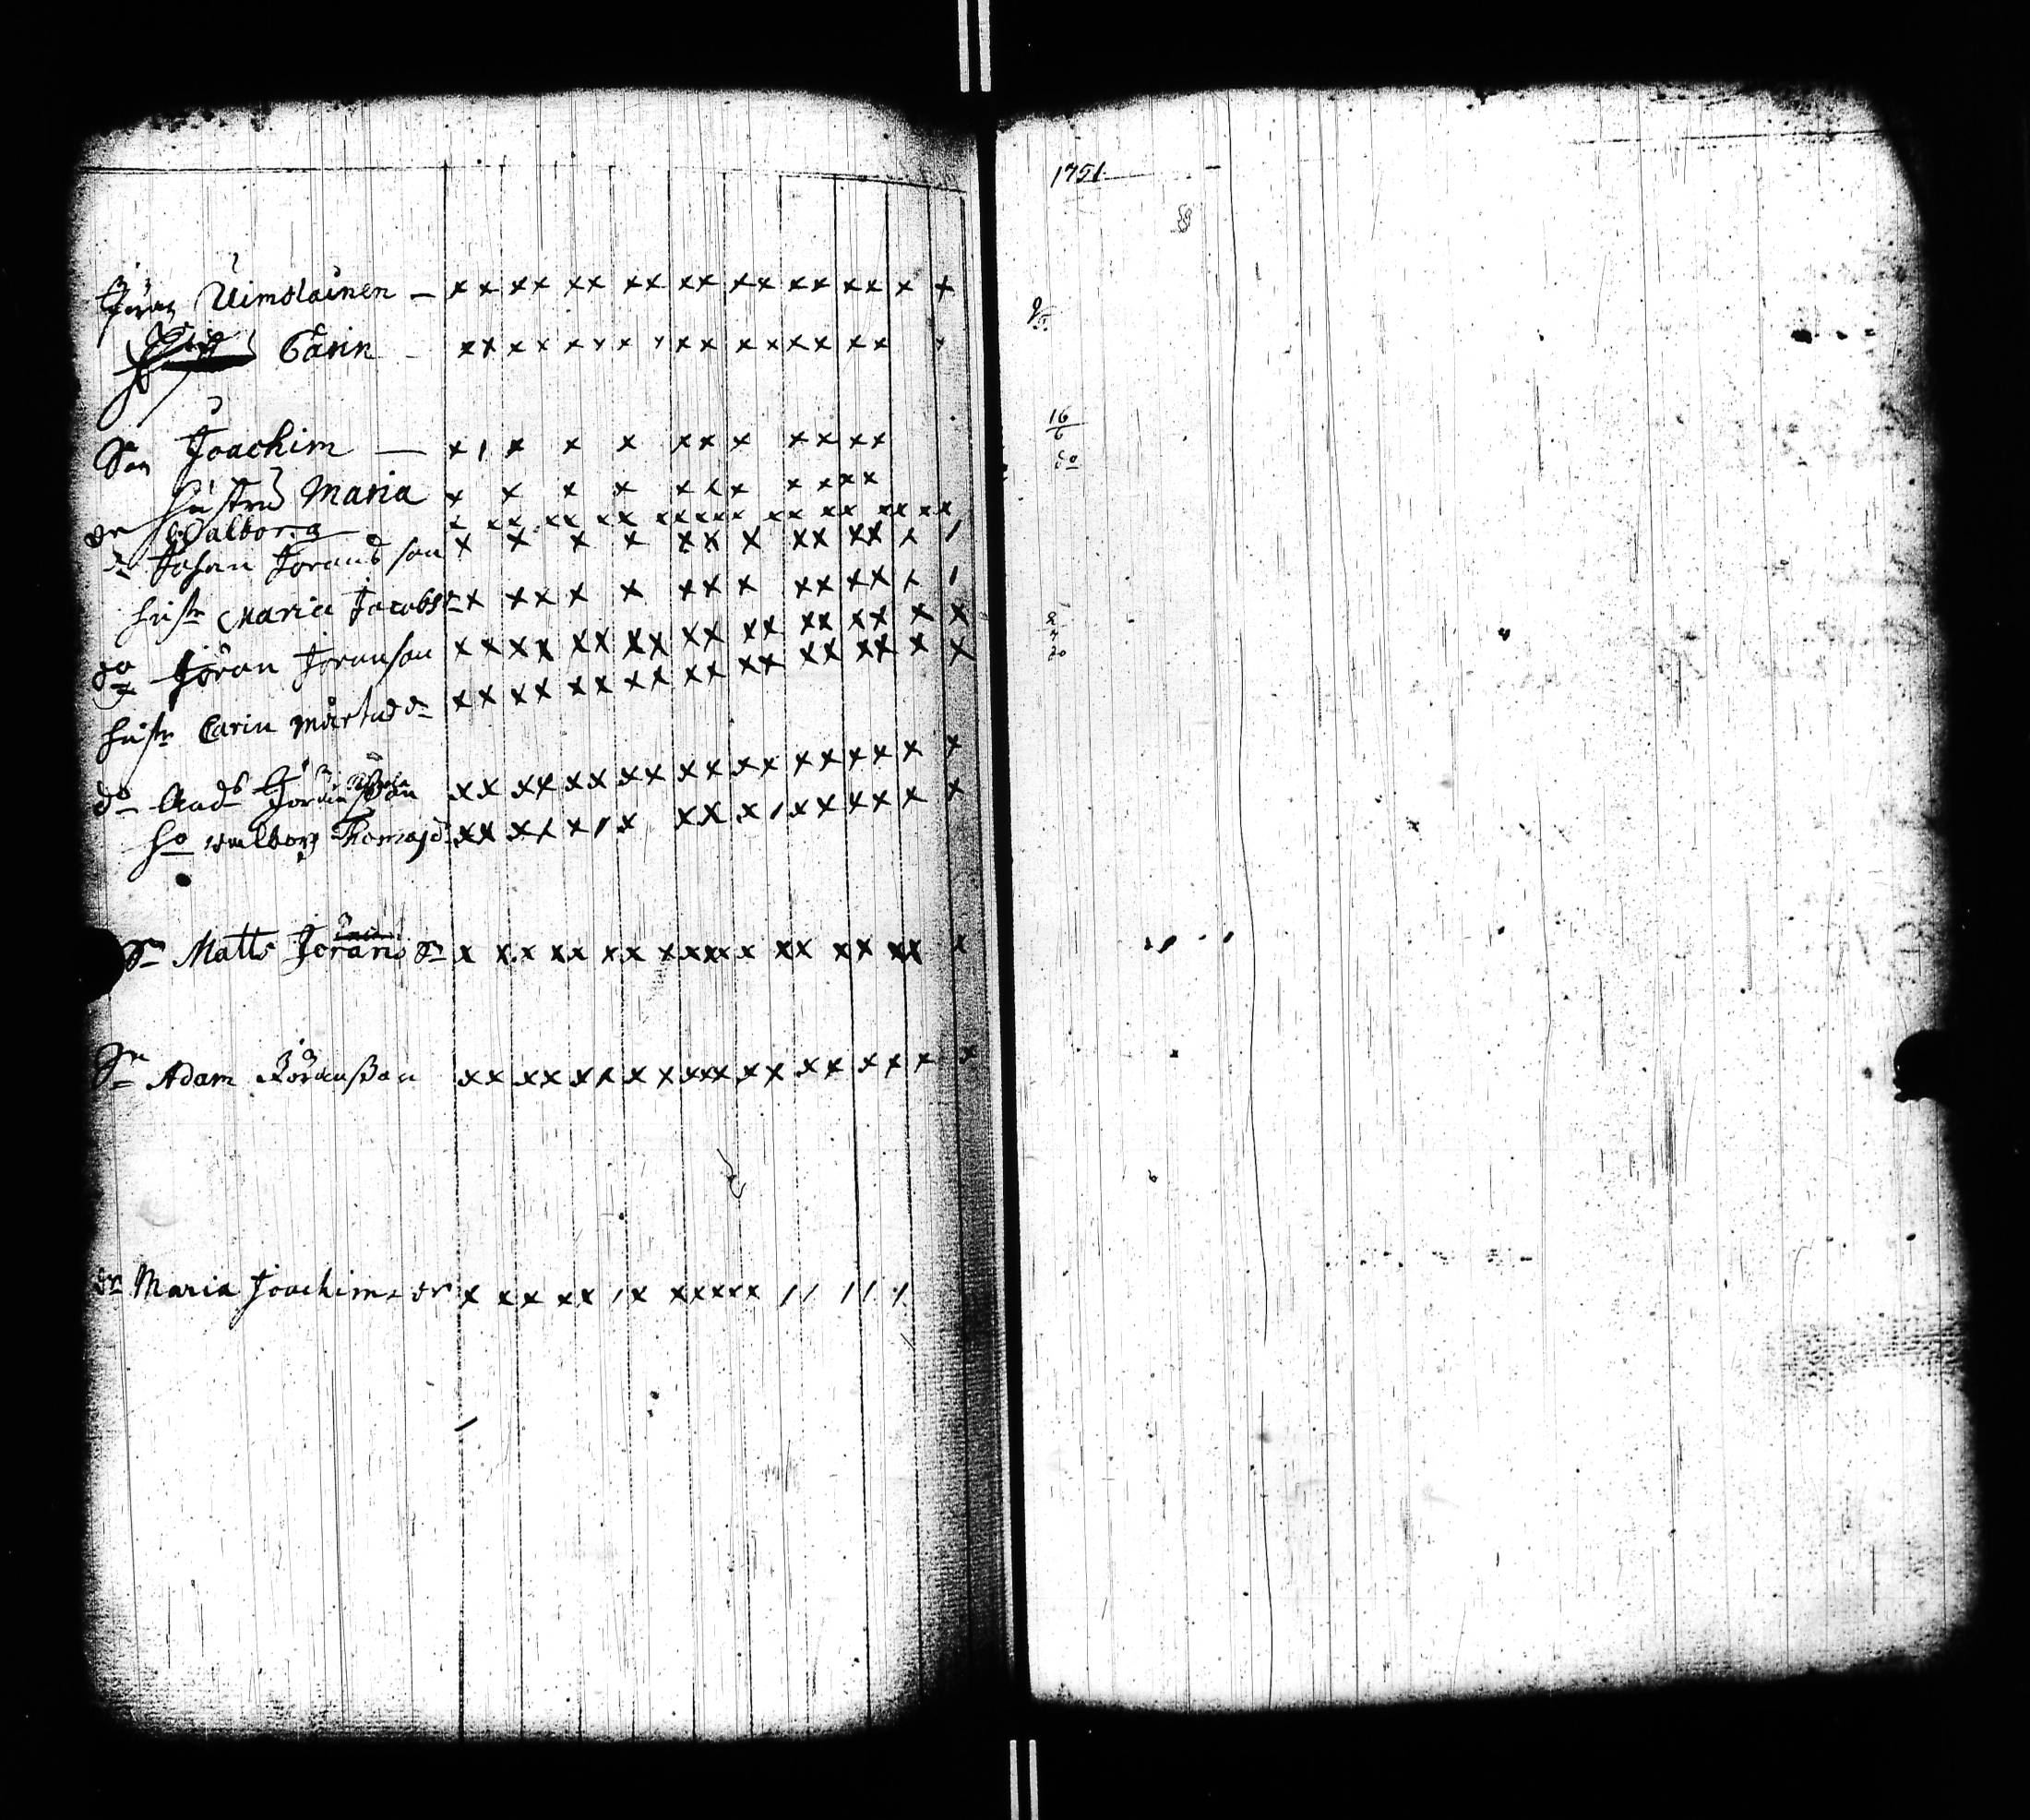 Jöran Uimolainen — xx xx xx xx xx xx xx xx x x
Carin - xx xx xx x x xx xx xx xx x
Son Joachim — x 1 x x x xx x xx xx
hustru Maria x x x x xxx xx xx
dr Walborg x xx xx xx xxxxx xx xx xx xx
Sn Johan Jöransson x x x x xx x xx xx x 1
hustr Maria Jacobsdr x xx x x xx x xx xx x 1
do Jöran Jöranson xx xx xx xx xx xx xx xx x x
hustr Carin Mårtsdr xx xx xx xx xx xx xx xx x x
do Anders Jöransson xx xx xx xx xx xx xx xx x x
ho Walborg Thomasdr xx xx x / x xx x / xx xx x x
Sn Matts Jörans Sn x xx xx xx xxxxx xx xx xx x
Sn Adam Jöranßon xx xx xx x x xxx xx xx xx x x
dr Maria Joachims dr x xx xx / x xxxxx // // /
1751
16
6
do